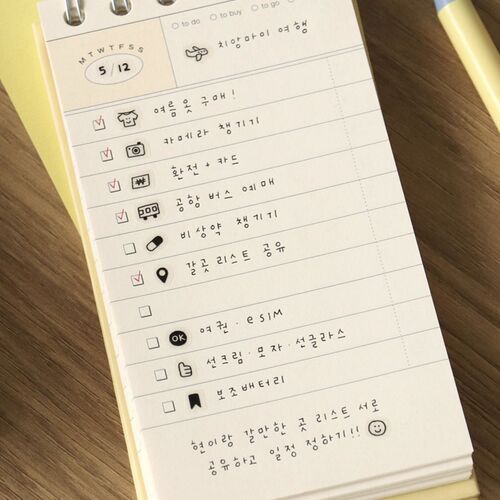 to do to buy to go
M T W T F S S
5/12
치앙마이 여행
여름옷 구매!
카메라 챙기기
환전 + 카드
공항 버스 예매
비상약 챙기기
갈곳 리스트 공유
OK 여권·eSIM
선크림·모자·선글라스
보조배터리
현이랑 갈만한 곳 리스트 서로
공유하고 일정 정하기!!